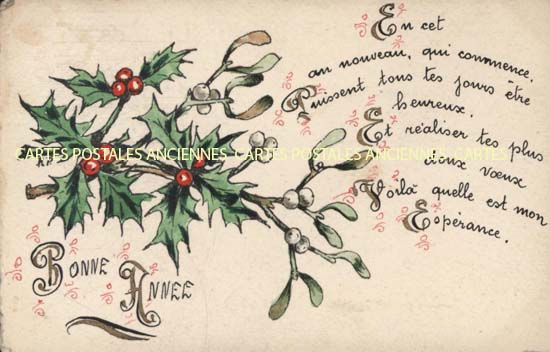 En cet
an nouveau, qui commence,
Puissent tous tes jours être
heureux.
Et réaliser tes plus
doux vœux
Voilà quelle est mon
Espérance.
CARTES POSTALES ANCIENNES CARTES POSTALES ANCIENNES
BONNE
ANNÉE